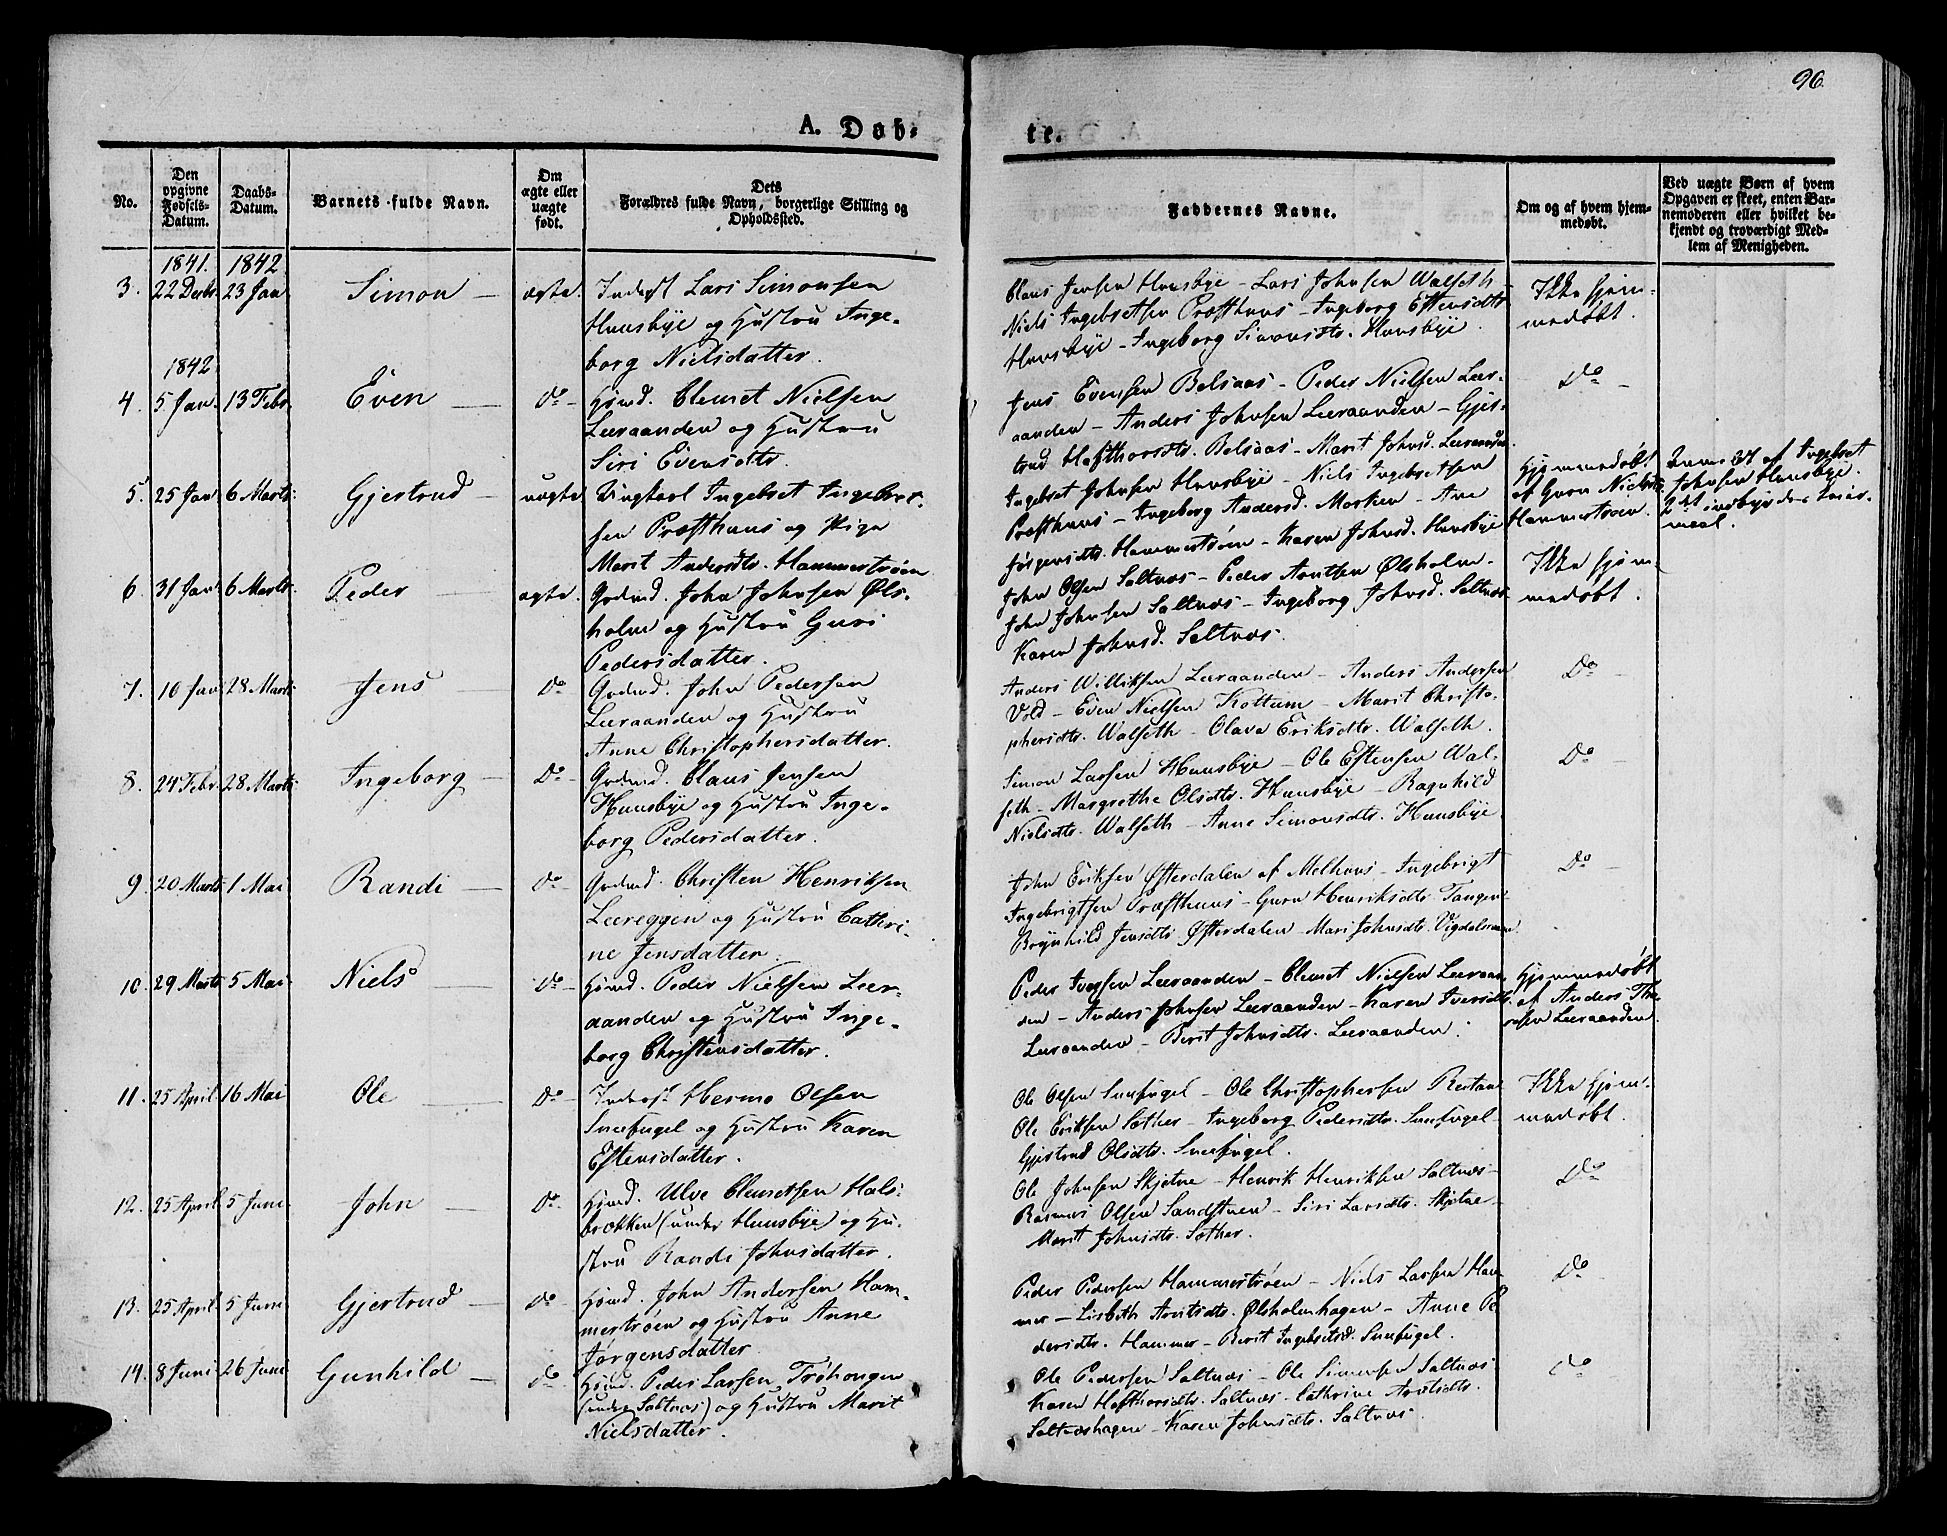 96.
A. Døb-
te.
No.
Den opgivne Fødsels-Datum.
Daabs-Datum.
Barnets fulde Navn.
Om ægte eller uægte født.
Dets Forældres fulde Navn, borgerlige Stilling og Opholdssted.
Faddernes Navne.
Om og af hvem hjem-medøbt.
Ved uægte Børn af hvem Opgaven er skeet, enten Bar-nemoderen eller hvilket be-kjendt og troværdigt Med-lem af Menigheden.
1841. 1842
3. 22 Decbr. 23 Jan. Simon – ægte. Inderst Lars Simonsen
Huusbye og Hustru Inge-
borg Nielsdatter.
Claus Jensen Huusbye – Lars Johnsen Walseth
Niels Ingebretsen Præsthuus – Ingeborg Estensdtr.
Huusbye – Ingeborg Simonsdtr. Huusbye.
Ikke hjem-
medøbt.
1842
4. 5 Jan. 13 Febr. Even – Do – Huusmd. Clemet Nielsen
Leeraanden og Hustru
Siri Evensdtr.
Jens Evensen Belsaas – Peder Nielsen Leer-
aanden – Anders Johnsen Leeraanden – Gjer-
trud Hafthorsdtr. Belsaas – Marit Johnsd. Leeraanden.
Do –
5. 25 Jan. 6 Marts. Gjertrud – uægte Ungkarl Ingebret Ingebret-
sen Præsthuus og Pige
Marit Andersdtr. Hammertrøen
Ingebret Johnsen Huusbye – Niels Ingebretsen
Præsthuus – Ingeborg Andersd. Morken – Ane
Jørgensdtr. Hammertrøen – Karen Johnsd. Huusbye
Hjemmedøbt
af Guru Nielsdtr.
Hammertrøen.
af Ingebret
Johnsen Huusbye.
2det
6. 31 Jan. 6 Marts. Peder – ægte. Gaardmd. John Johnsen Øls-
holm og Hustru Guri
Pedersdatter.
John Olsen Saltnæs – Peder Arntsen Ølsholm –
John Johnsen Saltnæs – Ingeborg Johnsd. Saltnæs
Karen Johnsd. Saltnæs.
Ikke hjem-
medøbt.
7. 10 Jan. 28 Marts Jens – Do Gaardmd. John Pedersen
Leeraanden og Hustru
Anne Christophersdatter.
Anders Williksen Leeraanden – Anders Andersen
Vold – Even Nielsen Kottum – Marit Christo-
phersdtr. Walseth – Olava Eriksdtr. Walseth.
Do –
8. 24 Febr. 28 Marts Ingeborg – Do – Gaardmd. Claus Jensen
Huusbye og Hustru Inge-
borg Pedersdatter.
Simon Larsen Huusbye – Ole Estensen Wal-
seth – Margrethe Olsdtr. Huusbye – Ragnhild
Nielsdtr. Walseth – Anne Simonsdtr. Huusbye.
Do –
9. 20 Marts 1 Mai Randi – Do – Gaardmd. Christen Henriksen
Leereggen og Hustru Cathri-
ne Jensdatter.
John Eriksen Østerdalen af Melhuus – Ingebrigt
Ingebrigtsen Præsthuus – Guru Henriksdtr. Tangen –
Brynhild Jensdtr. Østerdalen – Mari Johnsdtr. Vigdalsmoen
Do –
10. 29 Marts 5 Mai Niels – Do – Huusmd. Peder Nielsen Leer-
aanden og Hustru Inge-
borg Christensdatter.
Peder Iversen Leeraanden – Clemet Nielsen Leeraan-
den – Anders Johnsen Leeraanden – Karen Iversdtr.
Leeraanden – Berit Johnsdtr. Leeraanden.
Hjemmedøbt
af Anders
Leeraanden.
11. 25 April 16 Mai Ole – Do – Inderst Hermo Olsen
Sneefugel og Hustru Karen
Estensdatter.
Ole Olsen Sneefugel – Ole Christophersen
Ole Eriksen Sother – Ingeborg Pedersdtr. Sneefugel –
Gjertrud Olsdtr. Sneefugel.
Ikke hjem-
medøbt.
12. 25 April 5 Juni. John – Do – Huusmd. Ulve Clemetsen Hals-
brækken (under Huusbye) og Hu-
stru Randi Johnsdatter.
Ole Johnsen Skjetne – Henrik Henriksen Saltnæs –
Rasmus Olsen Sandstuen – Siri Larsdtr. Skjetne –
Marit Johnsdtr. Sother.
Do
13. 25 April 5 Juni Gjertrud – Do – Huusmd. John Andersen Ham-
mertrøen og Hustru Anne
Jørgensdatter
Peder Pedersen Hammertrøen – Niels Larsen Ham-
mer – Lisbeth Arntsdtr. Ølsholmhagen – Anne Pe-
dersdtr. Hammer – Berit Ingebretsd. Sneefugel.
Do –
14. 8 Juni 26 Juni Gunhild – Do Huusmd. Peder Larsen Trøhaugen
(under Saltnæs) og Hustru Marit
Nielsdatter.
Ole Pedersen Saltnæs – Ole Simonsen Saltnæs
Karen Hafthorsdtr. Saltnæs – Cathrine Arntsdtr.
Saltnæshagen – Karen Johnsdtr. Saltnæs.
Do